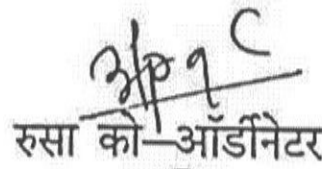 रुसा को-ऑर्डीनेटर